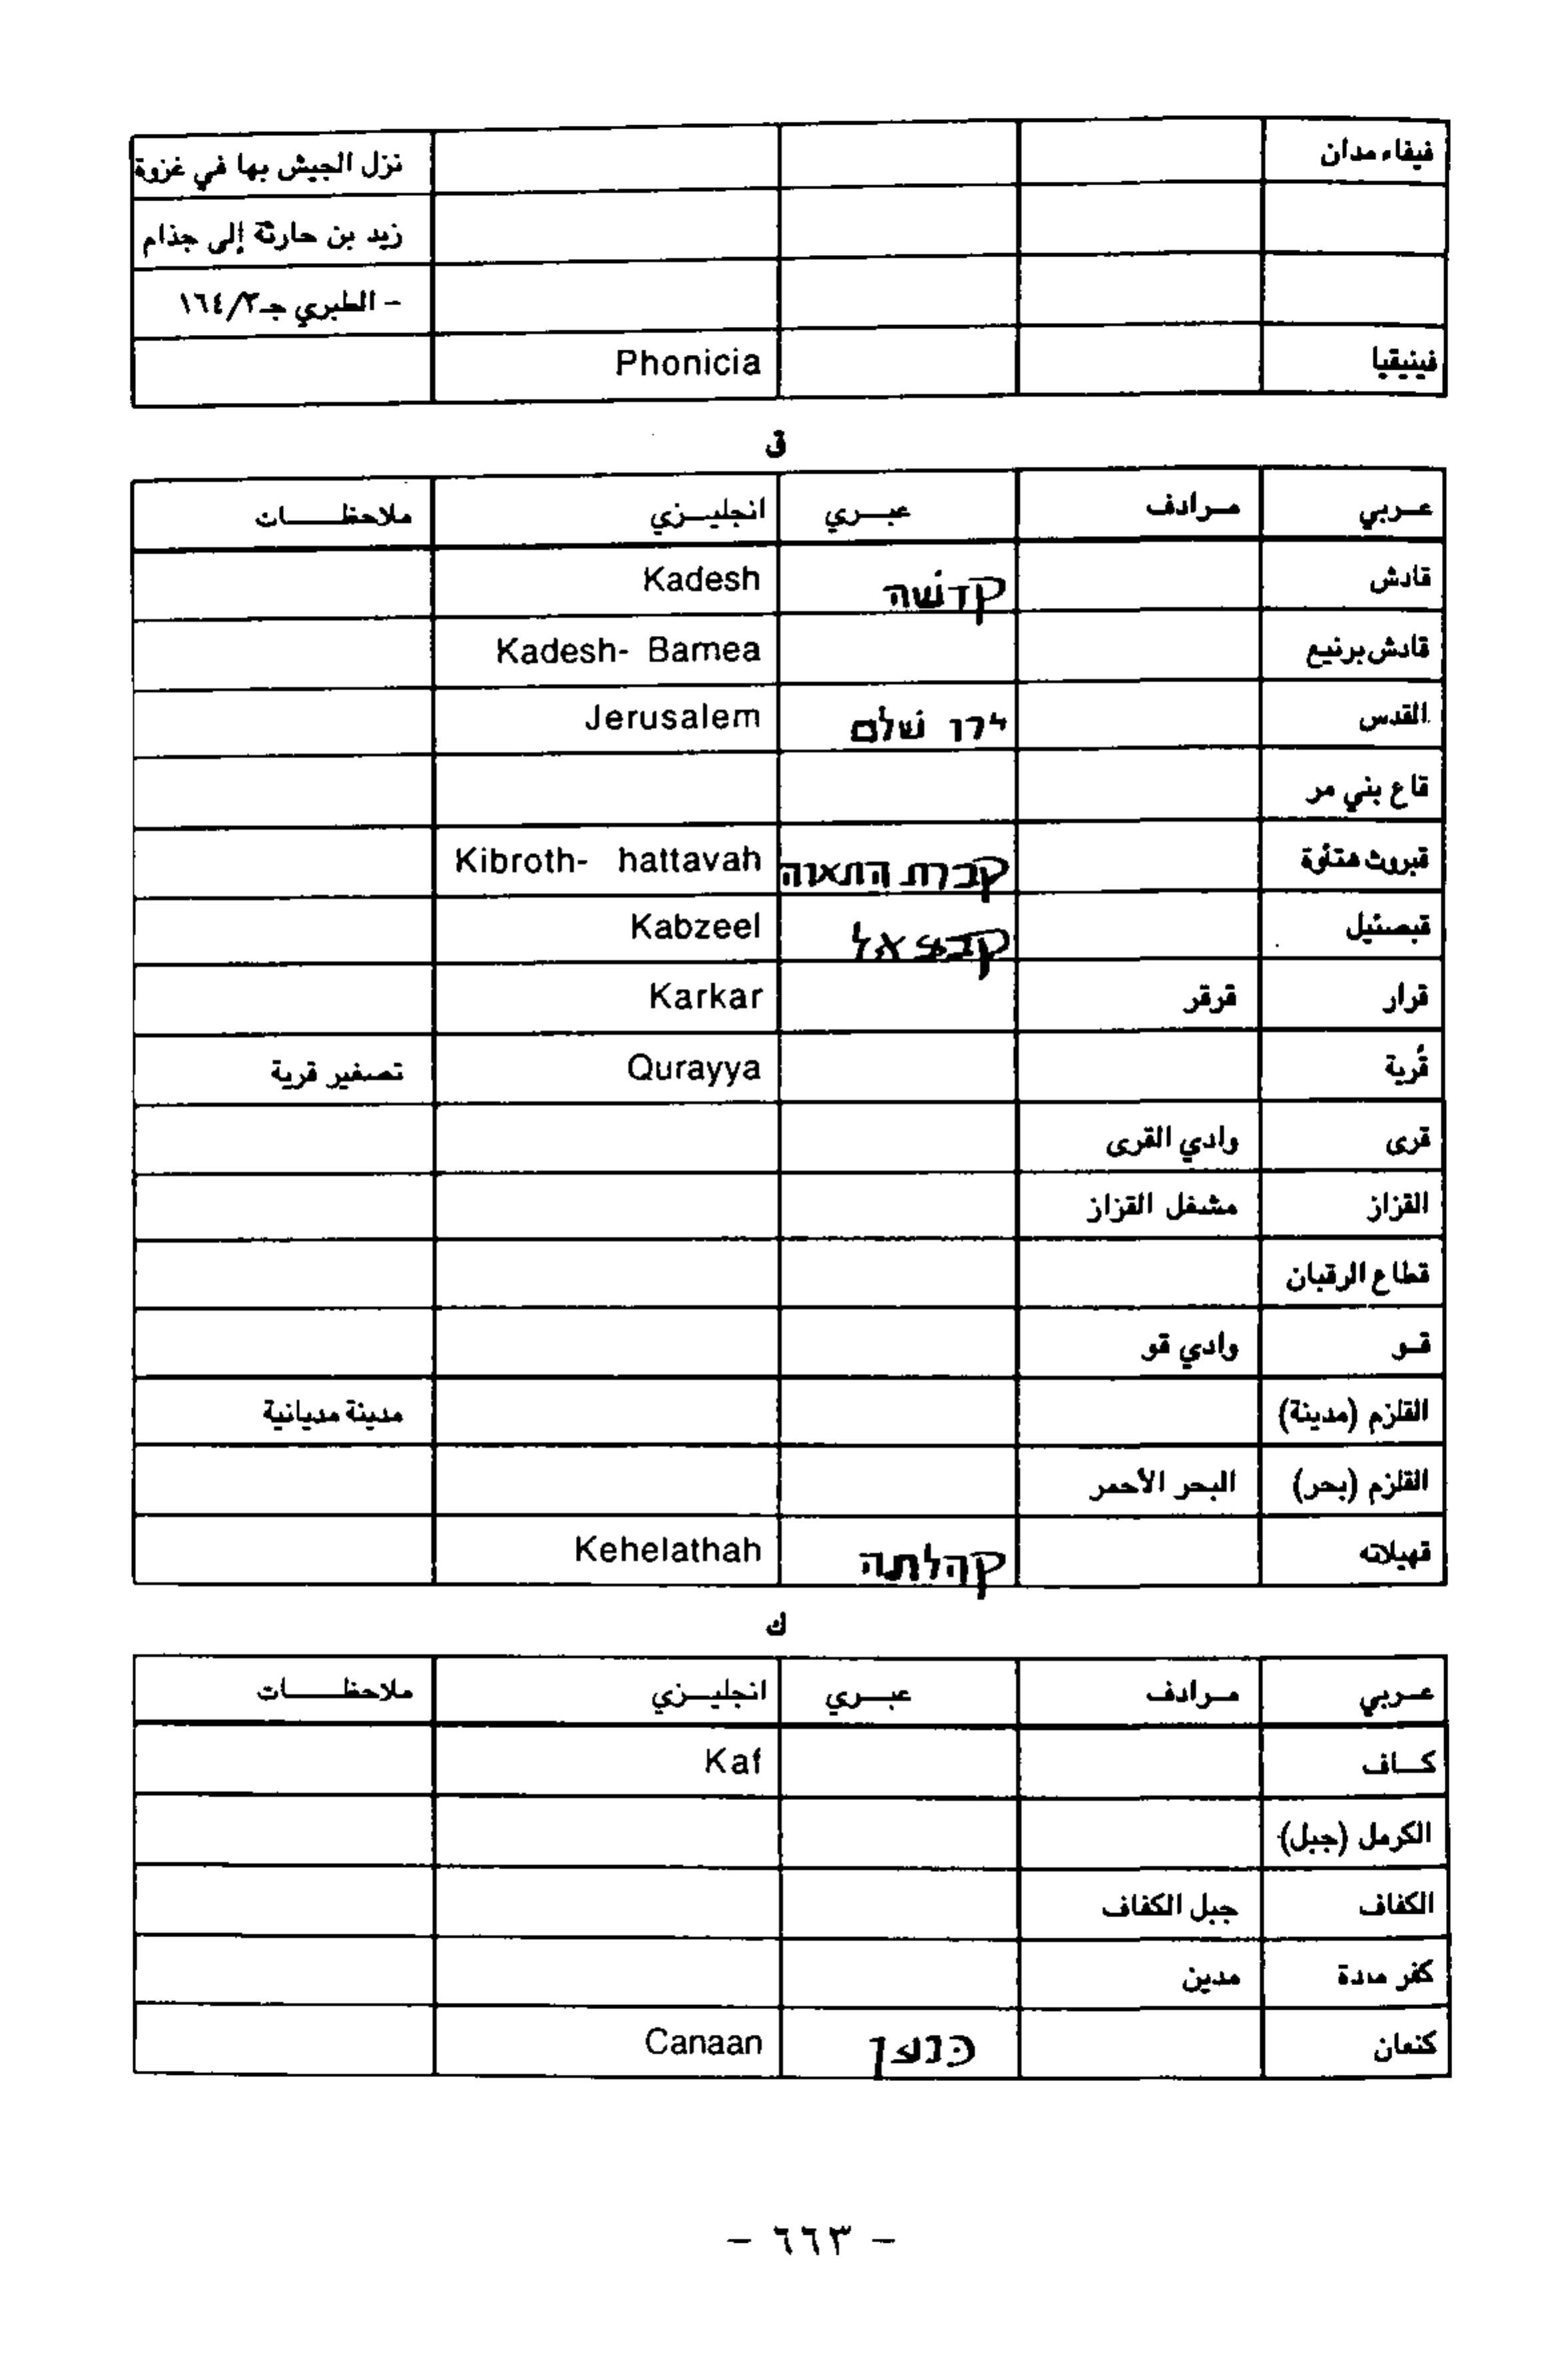 فيفاء مدان نزل الجيش بها في غزوة
زيد بن حارثة إلى جذام
- الطبري جـ٢/١٦٤
فينيقيا Phonicia
ق
عــربي مـرادف عبــري انجليــزي ملاحظــــات
قادش קדשׁה Kadesh
قادش برنيع Kadesh- Bamea
القدس ירו שׁלם Jerusalem
قاع بني مر
قبروث هتأوة קברת התאוה Kibroth- hattavah
قبصئيل קבצאל Kabzeel
قرار قرقر Karkar
قُرية Qurayya تصغير قرية
قرى وادي القرى
القزاز مشغل القزاز
قطاع الرقبان
قـو وادي قو
القلزم (مدينة) مدينة مديانية
القلزم (بحر) البحر الأحمر
قهيلاته קהלתה Kehelathah
ك
عــربي مـرادف عبــري انجليــزي ملاحظــــات
كــاف Kaf
الكرمل (جبل)
الكفاف جبل الكفاف
كفر مندة مدين
كنعان כּנען Canaan
- ٦٦٣ -